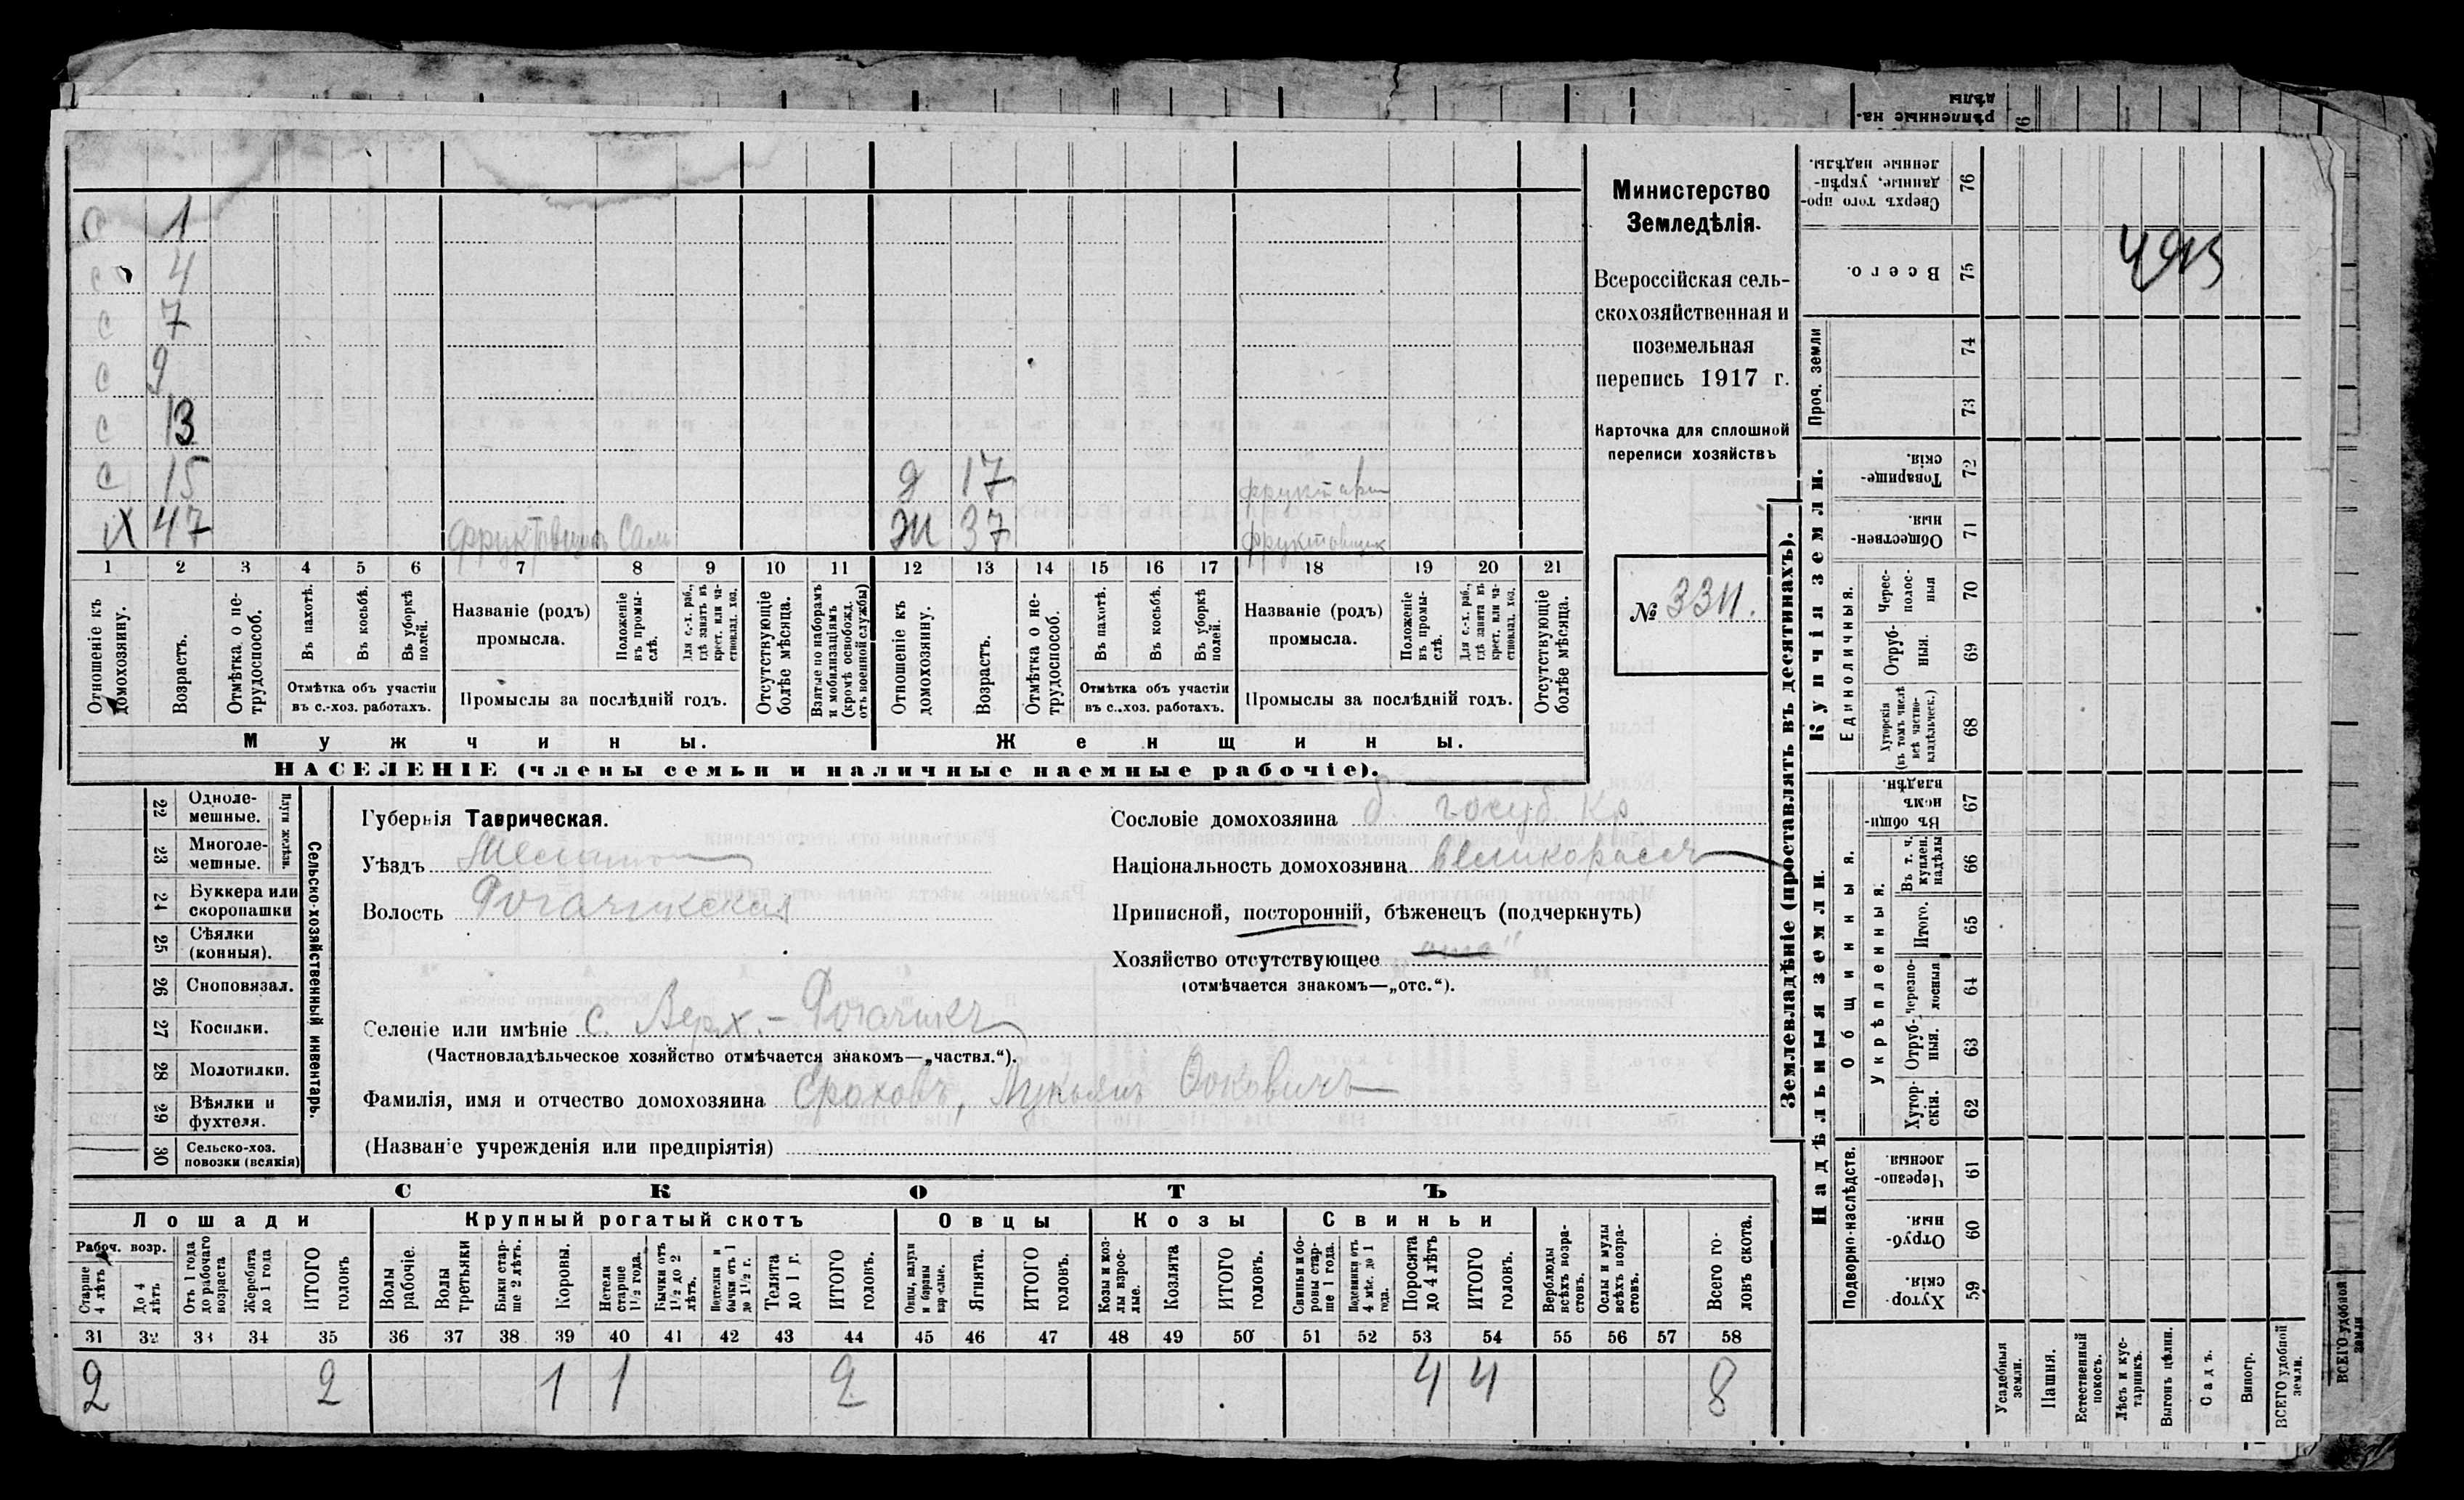 рѣпленные на-
дѣлы
76
Министерство
Земледѣлія.
Всероссійская сель-
скохозяйственная и
поземельная
перепись 1917 г.
Карточка для сплошной
переписи хозяйствъ
№ 3311.
С 1
С 4
С 7
С 9
С 13
С 15 д 17
Х 47 фруктовщикъ Сам Ж 37 фруктовщик
1 2 3 4 5 6 7 8 9 10 11 12 13 14 15 16 17 18 19 20 21
Отношеніе къ домохозяину.
Возрастъ.
Отмѣтка о не-трудоспособ.
Въ пахотѣ.
Въ косьбѣ.
Въ уборкѣ полей.
Отмѣтка объ участіи
въ с.-хоз. работахъ.
Названіе (родъ)
промысла.
Положеніе въ промы-слѣ.
Для с.-х. раб., гдѣ занятъ въ крест. или ча-стновлад. хоз.
Промыслы за послѣдній годъ.
Отсутствующіе болѣе мѣсяца.
Взятые по наборамъ и мобилизаціямъ (кромѣ освобожд. отъ военной службы)
Отношеніе къ домохозяину.
Возрастъ.
Отмѣтка о не-трудоспособ.
Въ пахотѣ.
Въ косьбѣ.
Въ уборкѣ полей.
Отмѣтка объ участіи
въ с.-хоз. работахъ.
Названіе (родъ)
промысла.
Положеніе въ промы-слѣ.
Для с.-х. раб., гдѣ занята въ крест. или ча-стновлад. хоз.
Промыслы за послѣдній годъ.
Отсутствующіе болѣе мѣсяца.
Мужчины. Женщины.
НАСЕЛЕНІЕ (члены семьи и наличные наемные рабочіе).
Сельско-хозяйственный инвентарь.
Плуги желѣзн.
22 Одноле-мешные.
23 Многоле-мешные.
24 Буккера или скоропашки
25 Сѣялки (конныя).
26 Сноповязал.
27 Косилки.
28 Молотилки.
29 Вѣялки и фухтеля.
30 Сельско-хоз. повозки (всякія)
Губернія Таврическая.
Уѣздъ
Волость Рогачикская
Селеніе или имѣніе с. Верх.-Рогачикъ
(Частновладѣльческое хозяйство отмѣчается знакомъ—„частвл.“).
Фамилія, имя и отчество домохозяина Ероховъ, Лукьянъ Фоковичъ
(Названіе учрежденія или предпріятія)
Сословіе домохозяина б. госуд. Кр.
Національность домохозяина великороссъ
Приписной, посторонній, бѣженецъ (подчеркнуть)
Хозяйство отсутствующее
(отмѣчается знакомъ—„отс.“).
СКОТЪ
Лошади Крупный рогатый скотъ Овцы Козы Свиньи
Рабоч. возр.
Старше 4 лѣтъ
До 4 лѣтъ
Отъ 1 года до рабочаго возраста
Жеребята до 1 года
ИТОГО головъ
Волы рабочіе.
Волы третьяки
Быки стар-ше 2 лѣтъ.
Коровы.
Нетели старше 1½ года.
Бычки отъ 1½ до 2 лѣтъ.
Подтелки и бычки отъ 1 до 1½ г.
Телята до 1 г.
ИТОГО головъ.
Овцы, валухи и бараны взрослые.
Ягнята.
ИТОГО головъ.
Козы и коз-лы взрос-лые.
Козлята
ИТОГО головъ.
Свиньи и бо-ровы стар-ше 1 года.
Подсвинки отъ 4 мѣс. до 1 года.
Поросята до 4 лѣтъ
ИТОГО головъ.
Верблюды всѣхъ возра-стовъ.
Ослы и мулы всѣхъ возра-стовъ.
Всего го-ловъ скота.
31 32 33 34 35 36 37 38 39 40 41 42 43 44 45 46 47 48 49 50 51 52 53 54 55 56 57 58
2 2 1 1 2 4 4 8
Землевладѣніе (проставлять въ десятинахъ).
Купчія земли.
Надѣльныя земли.
Проч. земли
Единоличныя.
Общинныя.
Укрѣпленныя.
Подворно-наслѣдств.
Сверхъ того про-данные, укрѣп-ленные надѣлы. 76
Всего. 75
74
73
Товарище-скія. 72
Обществен-ныя. 71
Черес-полос-ныя 70
Отруб-ныя. 69
Хуторскія (въ томъ числѣ всѣ частно-владѣльческ.) 68
Въ общи-номъ владѣн. 67
Въ т. ч. куплен. надѣлы 66
Итого. 65
Черезпо-лосныя 64
Отруб-ныя. 63
Хутор-скія. 62
Черезпо-лосныя. 61
Отруб-ныя 60
Хутор-скія 59
Усадебныя земли.
Пашня.
Естественный покосъ.
Лѣсъ и кус-тарникъ.
Выгонъ цѣлин.
Садъ.
Виногр.
ВСЕГО удобной земли.
ВСЕГО удобной земли